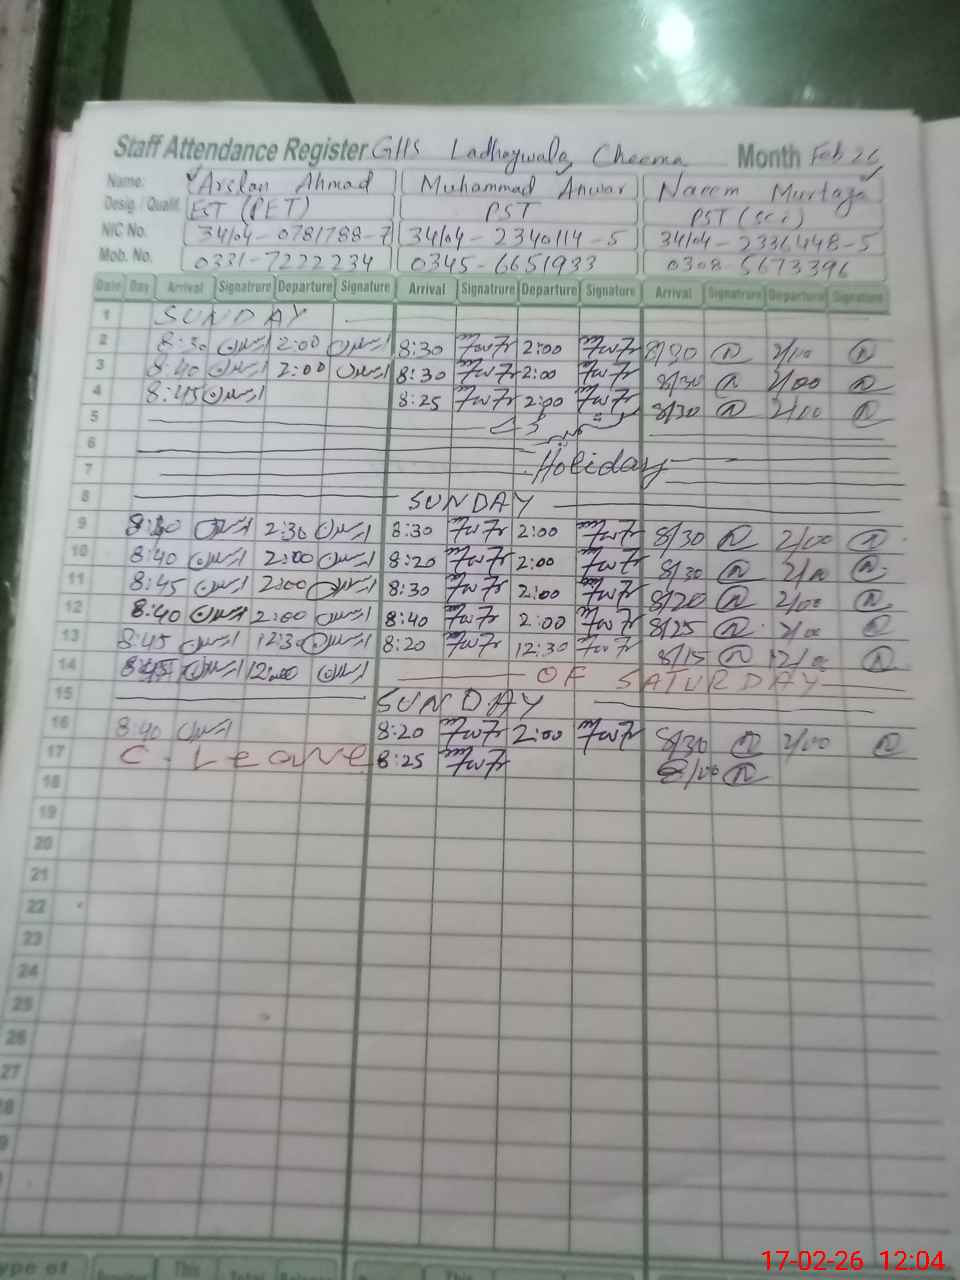 Staff Attendance Register GHS Ladhaywala Cheema Month Feb 26
Name: Arslan Ahmad Muhammad Anwar Naeem Murtaza
Desig. / Qualif. EST (PET) PST PST (Sci)
NIC No. 34104-0781788-7 34104-2340114-5 34104-2336448-5
Mob. No. 0331-7222234 0345-6651933 0308-5673396
Date Day Arrival Signatrure Departure Signature Arrival Signatrure Departure Signature Arrival Signatrure Departure Signature
1 SUNDAY
2 8:30 2:00 8:30 2:00 8/30 2/00
3 8:40 2:00 8:30 2:00 8/30 2/00
4 8:45 8:25 2:00 8/30 2/00
5
6
7 Holiday
8 SUNDAY
9 2:30 8:30 2:00 8/30 2/00
10 8:40 2:00 8:20 2:00 8/30 2/00
11 8:45 2:00 8:30 2:00 8/20 2/00
12 8:40 2:00 8:40 2:00 8/25 2/00
13 8:45 12:30 8:20 12:30 8/15 12/00
14 8:45 12:00 OF SATURDAY
15 SUNDAY
16 8:40 8:20 2:00 8/30 2/00
17 C. Leave 8:25
18
19
20
21
22
23
24
25
26
27
ype of This This
17-02-26 12:04